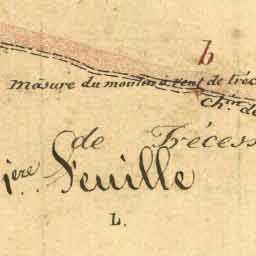 b
Mâsure du moulin à vent de tréc
Ch.in de
de Trécess
1ère Feuille
L.